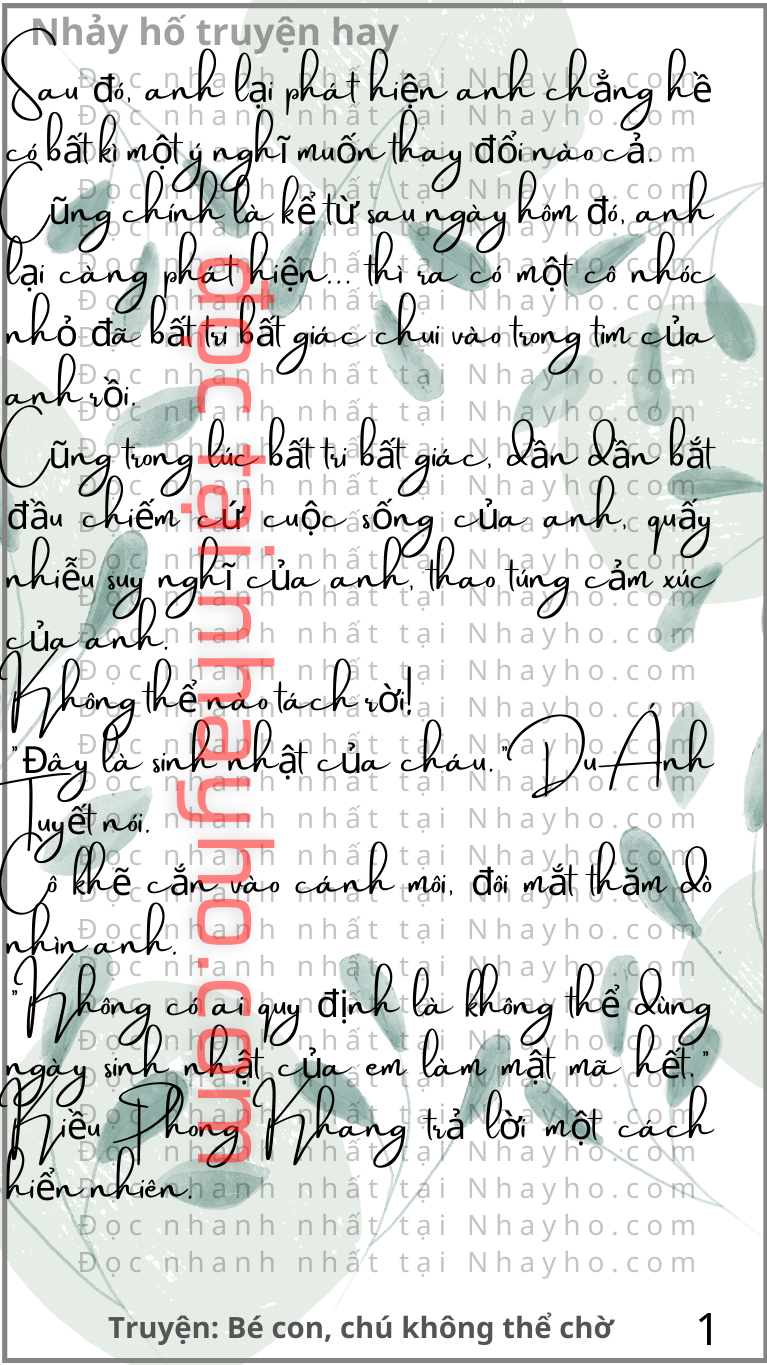 Nhảy hố truyện hay
Sau đó, anh lại phát hiện anh chẳng hề
có bất kì một ý nghĩ muốn thay đổi nào cả.
Cũng chính là kể từ sau ngày hôm đó, anh
lại càng phát hiện... thì ra có một cô nhóc
nhỏ đã bất tri bất giác chui vào trong tim của
anh rồi.
Cũng trong lúc bất tri bất giác, dần dần bắt
đầu chiếm cứ cuộc sống của anh, quấy
nhiễu suy nghĩ của anh, thao túng cảm xúc
của anh.
Không thể nào tách rời!
"Đây là sinh nhật của cháu." Du Ánh
Tuyết nói.
Cô khẽ cắn vào cánh môi, đôi mắt thăm dò
nhìn anh.
"Không có ai quy định là không thể dùng
ngày sinh nhật của em làm mật mã hết."
Kiều Phong Khang trả lời một cách
hiển nhiên.
đọc tại nhayho.com
Đọc nhanh nhất tại Nhayho.com
Truyện: Bé con, chú không thể chờ
1